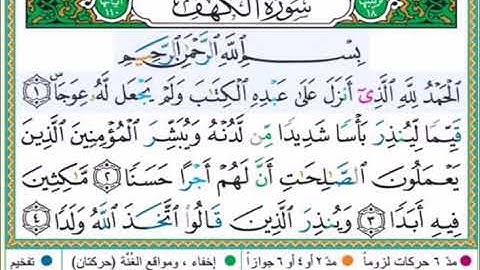 ترتيبها ١٨ سورة الكهف آياتها ١١٠
بِسْمِ ٱللَّهِ ٱلرَّحْمَٰنِ ٱلرَّحِيمِ
ٱلْحَمْدُ لِلَّهِ ٱلَّذِىٓ أَنزَلَ عَلَىٰ عَبْدِهِ ٱلْكِتَٰبَ وَلَمْ يَجْعَل لَّهُۥ عِوَجَاۜ ١
قَيِّمًا لِّيُنذِرَ بَأْسًا شَدِيدًا مِّن لَّدُنْهُ وَيُبَشِّرَ ٱلْمُؤْمِنِينَ ٱلَّذِينَ
يَعْمَلُونَ ٱلصَّٰلِحَٰتِ أَنَّ لَهُمْ أَجْرًا حَسَنًا ٢ مَّٰكِثِينَ
فِيهِ أَبَدًا ٣ وَيُنذِرَ ٱلَّذِينَ قَالُوا۟ ٱتَّخَذَ ٱللَّهُ وَلَدًا ٤
مدّ ٦ حركات لزوماً مدّ ٢ أو ٤ أو ٦ جوازاً إخفاء ، ومواقع الغُنَّة (حركتان) تفخيم